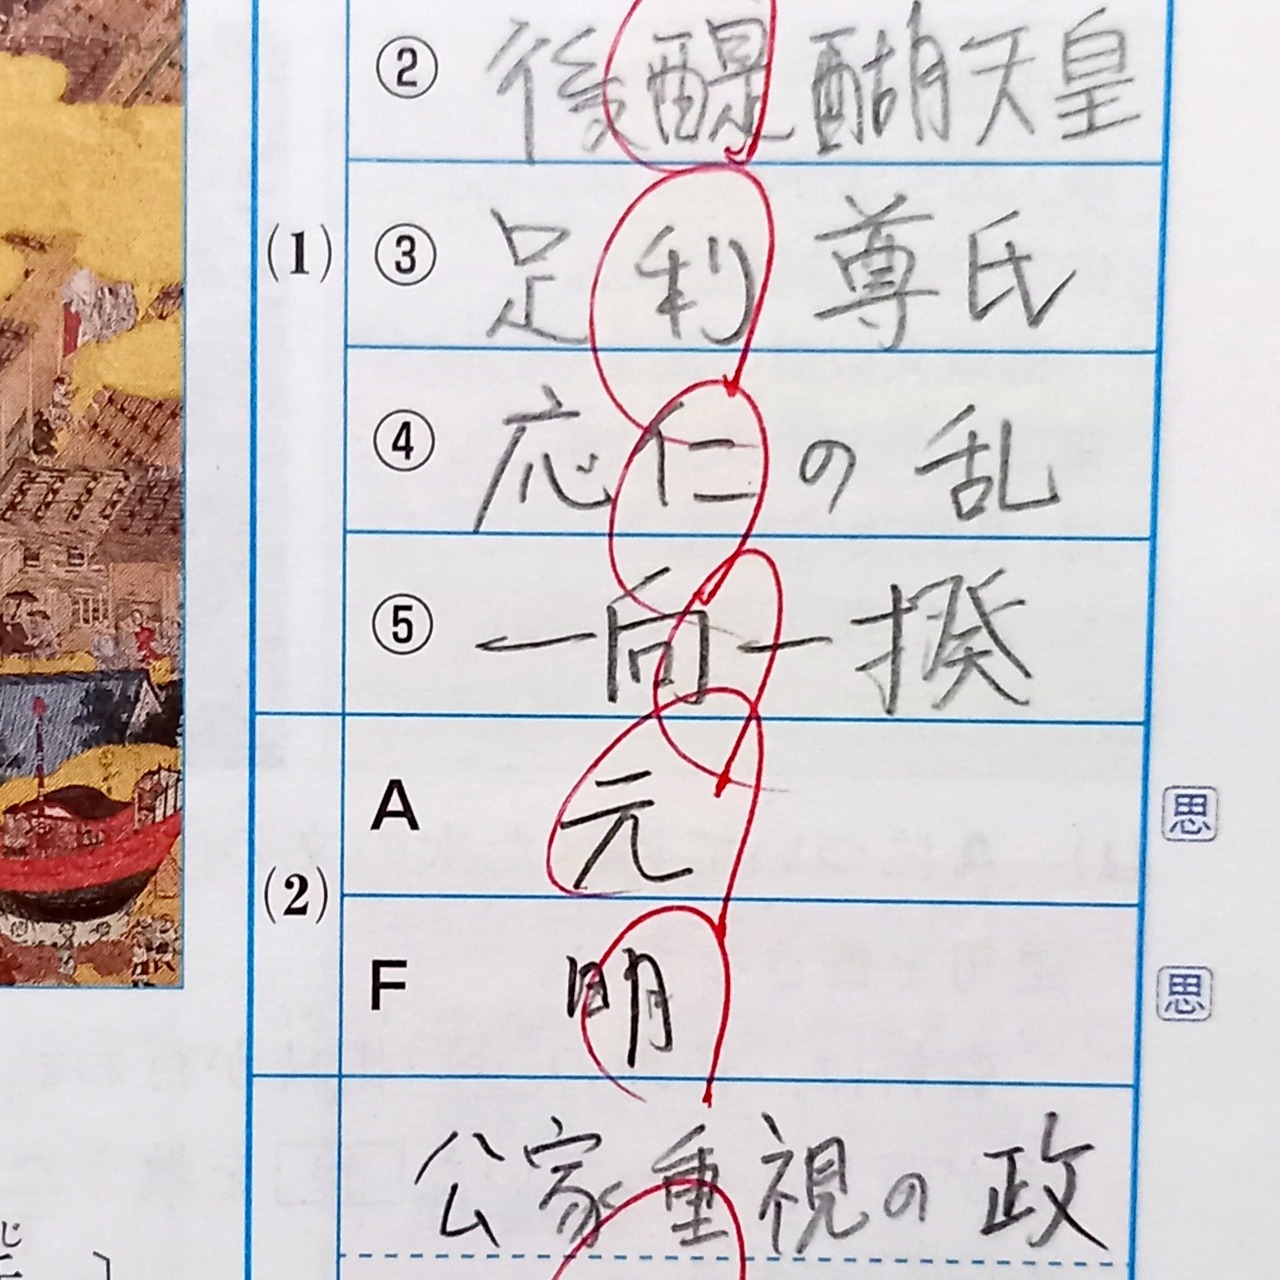 ② 後醍醐天皇
(1) ③ 足利尊氏
④ 応仁の乱
⑤ 一向一揆
A 元 思
(2)
F 明 思
公家重視の政
じ
］